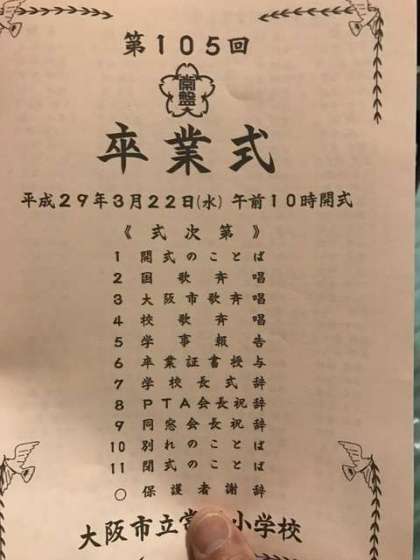 第105回
常盤
卒業式
平成29年3月22日(水) 午前10時開式
《式次第》
1 開式のことば
2 国歌斉唱
3 大阪市歌斉唱
4 校歌斉唱
5 学事報告
6 卒業証書授与
7 学校長式辞
8 PTA会長祝辞
9 同窓会長祝辞
10 別れのことば
11 閉式のことば
○ 保護者謝辞
大阪市立常 小学校